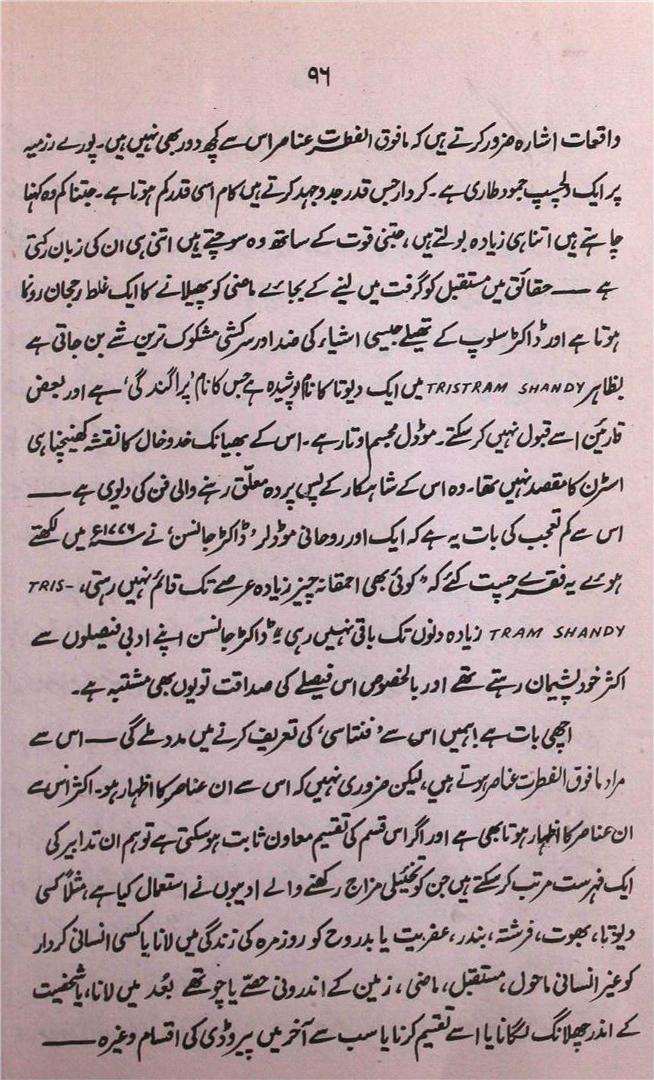 ۹۶
واقعات اشارہ ضرور کرتے ہیں کہ مافوق الفطرت عناصر اس سے کچھ دور بھی نہیں ہیں۔ پورے رزمیہ
پر ایک دلچسپ جمود طاری ہے۔ کردار جس قدر جدوجہد کرتے ہیں کام اسی قدر کم ہوتا ہے۔ جتنا کم وہ کہنا
چاہتے ہیں اتنا ہی زیادہ بولتے ہیں، جتنی قوت کے ساتھ وہ سوچتے ہیں اتنی ہی ان کی زبان رکتی
ہے — حقائق میں مستقبل کو گرفت میں لینے کے بجائے ماضی کو پھیلانے کا ایک غلط رجحان رونما
ہوتا ہے اور ڈاکٹر سلوپ کے تھیلے جیسی اشیاء کی ضد اور سرکشی مشکوک ترین شے بن جاتی ہے
بظاہر TRISTRAM SHANDY میں ایک دیوتا کا نام پوشیدہ ہے جس کا نام ’پراگندگی‘ ہے اور بعض
قارئین اسے قبول نہیں کر سکتے۔ موڈل مجسم اوتار ہے۔ اس کے بھیانک خدوخال کا نقشہ کھینچنا ہی
اسٹرن کا مقصد نہیں تھا۔ وہ اس کے شاہکار کے پس پردہ معلق رہنے والی فن کی دیوی ہے —
اس سے کم تعجب کی بات یہ ہے کہ ایک اور روحانی موڈلر ’ڈاکٹر جانسن‘ نے ۱۷۷۶ء میں لکھتے
ہوئے یہ فقرے چست کئے کہ ”کوئی بھی احمقانہ چیز زیادہ عرصے تک قائم نہیں رہتی، TRIS-
TRAM SHANDY زیادہ دنوں تک باقی نہیں رہی“ ڈاکٹر جانسن اپنے ادبی فیصلوں سے
اکثر خود پشیمان رہتے تھے اور بالخصوص اس فیصلے کی صداقت تو یوں بھی مشتبہ ہے۔
اچھی بات ہے! ہمیں اس سے ’فنتاسی‘ کی تعریف کرنے میں مدد ملے گی — اس سے
مراد مافوق الفطرت عناصر ہوتے ہیں، لیکن ضروری نہیں کہ اس سے ان عناصر کا اظہار ہو۔ اکثر اس سے
ان عناصر کا اظہار ہوتا بھی ہے اور اگر اس قسم کی تقسیم معاون ثابت ہو سکتی ہے تو ہم ان تدابیر کی
ایک فہرست مرتب کر سکتے ہیں جن کو تخئیلی مزاج رکھنے والے ادیبوں نے استعمال کیا ہے، مثلاً کسی
دیوتا، بھوت، فرشتہ، بندر، عفریت یا بدروح کو روزمرہ کی زندگی میں لانا یا کسی انسانی کردار
کو غیر انسانی ماحول، مستقبل، ماضی، زمین کے اندرونی حصے یا چوتھے بُعد میں لانا، یا شخصیت
کے اندر چھلانگ لگانا یا اسے تقسیم کرنا یا سب سے آخر میں پیروڈی کی اقسام وغیرہ —